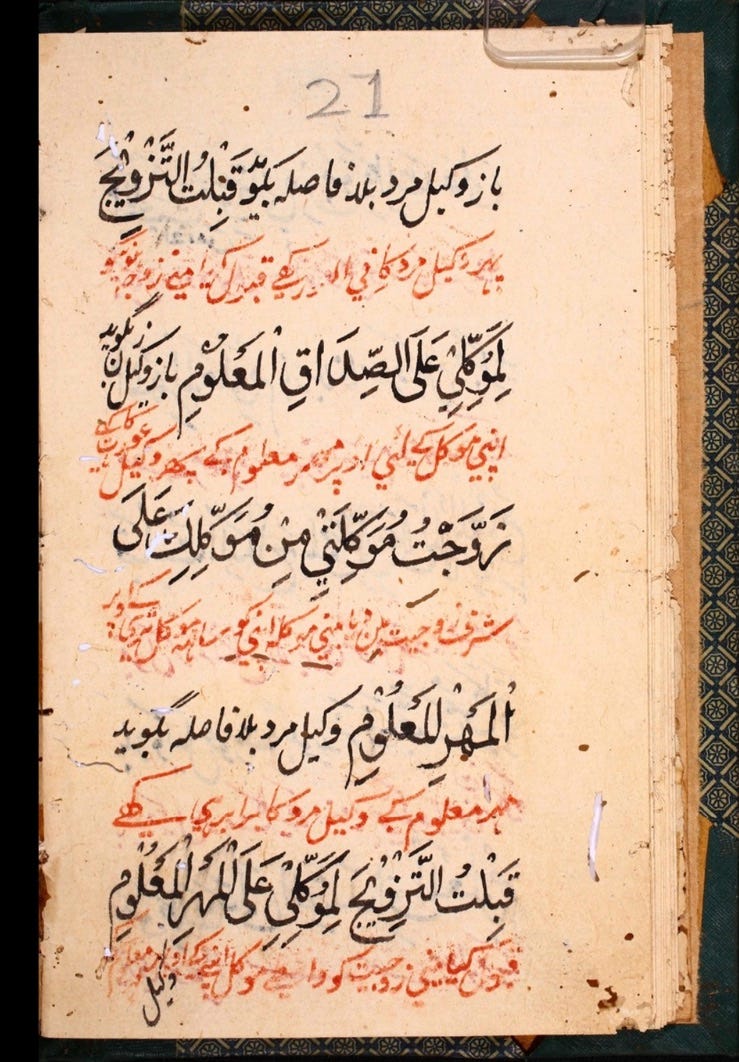 21
باز وکیل مرد بلا فاصله بگوید قَبِلْتُ التَّزْوِیْجَ
پهر وکیل مرد کا في الفور کهے قبول کیا مینے زوجیت کو
لِمُوَکِّلِيْ عَلَی الصِّدَاقِ الْمَعْلُوْمِ باز وکیل زن بگوید
اپني موکل کے لئي اوپر مهر معلوم کے پهر وکیل عورت کا کہے
زَوَّجْتُ مُوَکِّلَتِيْ مِنْ مُوَکِّلِكَ عَلَی
شرف زوجیت میں دیا میني موکله اپني کو ساتهه موکل تیري کے اوپر
الْمَهْرِ الْمَعْلُوْمِ وکیل مرد بلا فاصله بگوید
مهر معلوم کے وکیل مرد کا برابري سے کهے
قَبِلْتُ التَّزْوِیْجَ لِمُوَکِّلِيْ عَلَی الْمَهْرِ الْمَعْلُوْمِ
قبول کیا میني زوجیت کو واسطے موکل اپنے کے اوپر مهر معلوم
وکیل